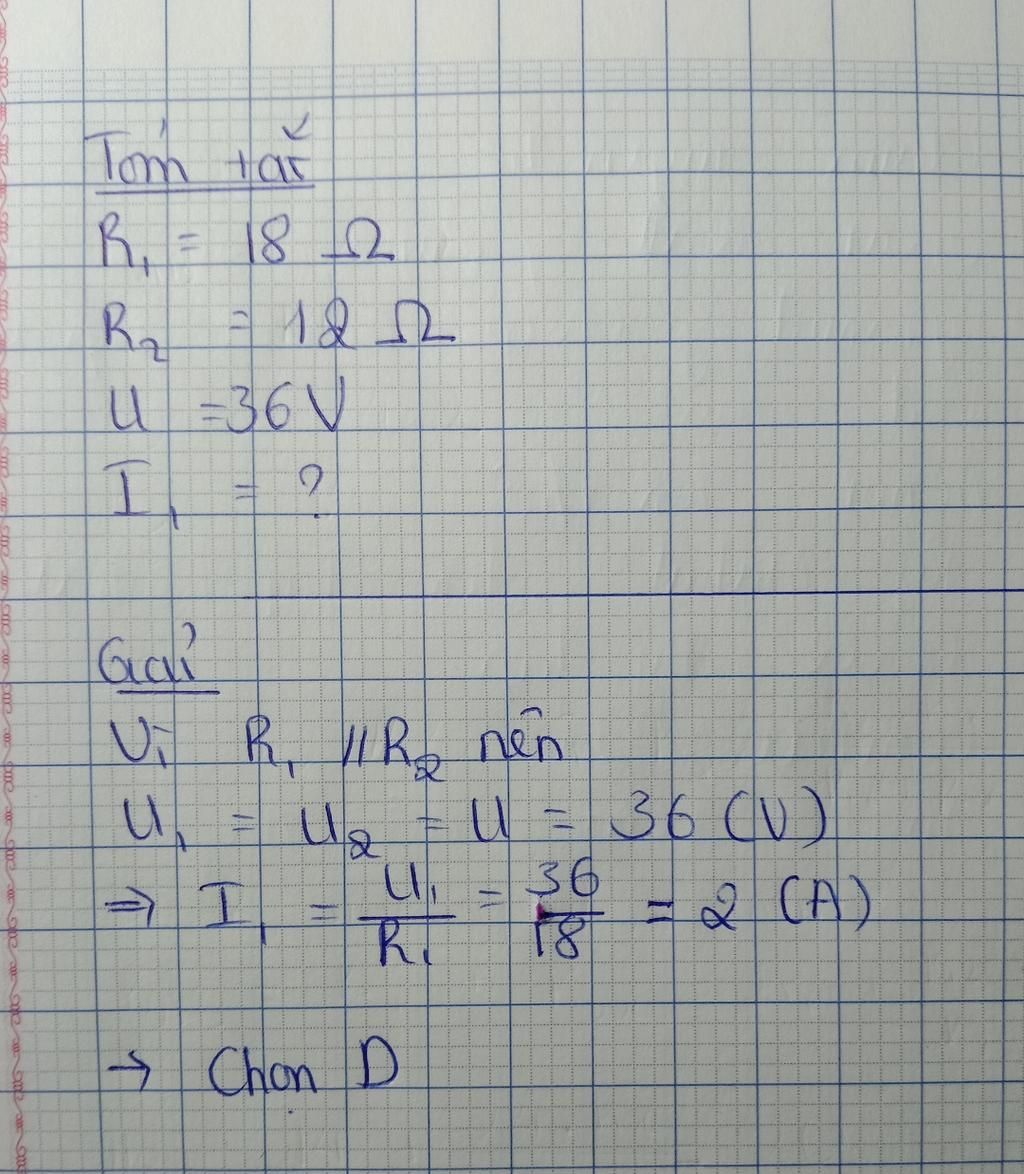 Tóm tắt
R₁ = 18 Ω
R₂ = 12 Ω
U = 36 V
I₁ = ?
Giải
Vì R₁ // R₂ nên
U₁ = U₂ = U = 36 (V)
⇒ I₁ = U₁/R₁ = 36/18 = 2 (A)
→ Chọn D